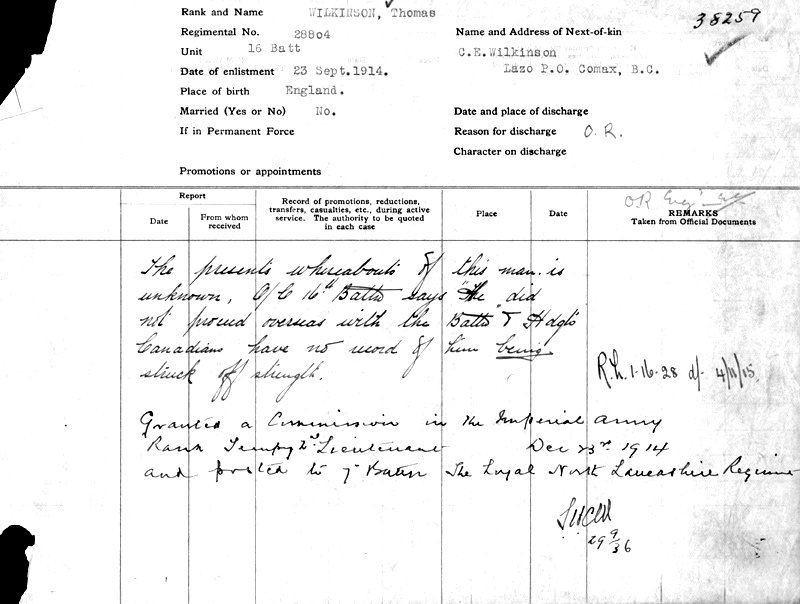 38259
Rank and Name WILKINSON, Thomas
Regimental No. 28804
Name and Address of Next-of-kin
Unit 16 Batt
C.E.Wilkinson
Date of enlistment 23 Sept.1914.
Lazo P.O. Comax, B.C.
Place of birth England.
Married (Yes or No) No.
Date and place of discharge
If in Permanent Force
Reason for discharge O.R.
Character on discharge
Promotions or appointments
Report
Date
From whom received
Record of promotions, reductions,
transfers, casualties, etc., during active
service. The authority to be quoted
in each case
Place
Date
O.R.
REMARKS
Taken from Official Documents
The presents whereabouts of this man is
unknown, O/C 16th Battn says "He did
not proceed overseas with the Battn" & Hdqts
Canadians have no record of him being
struck off strength.
R.h. 1-16-28 d/- 4/11/15.
Granted a Commission in the Imperial Army
Rank Tempy 2nd Lieutenant Dec 23rd 1914
and posted to 7th Battn The Loyal North Lancashire Regiment
29 9/36